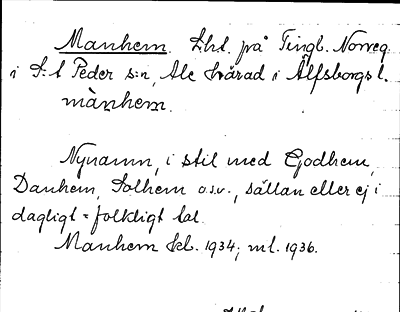 Manhem. Lht. på Tingb. Norveg
i S:t Peder s:n, Ale härad i Älfsborgs l.
mànhem.
Nynamn, i stil med Godhem,
Danhem, Solhem o.s.v., sällan eller ej i
dagligt = folkligt tal.
Manhem kl. 1934; ml. 1936.